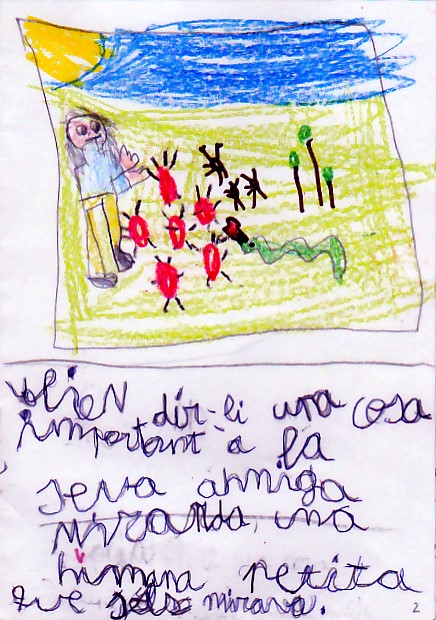 volien dir-li una cosa
important a la
seva amiga
Miranda, una
humana petita
que els mirava.
2